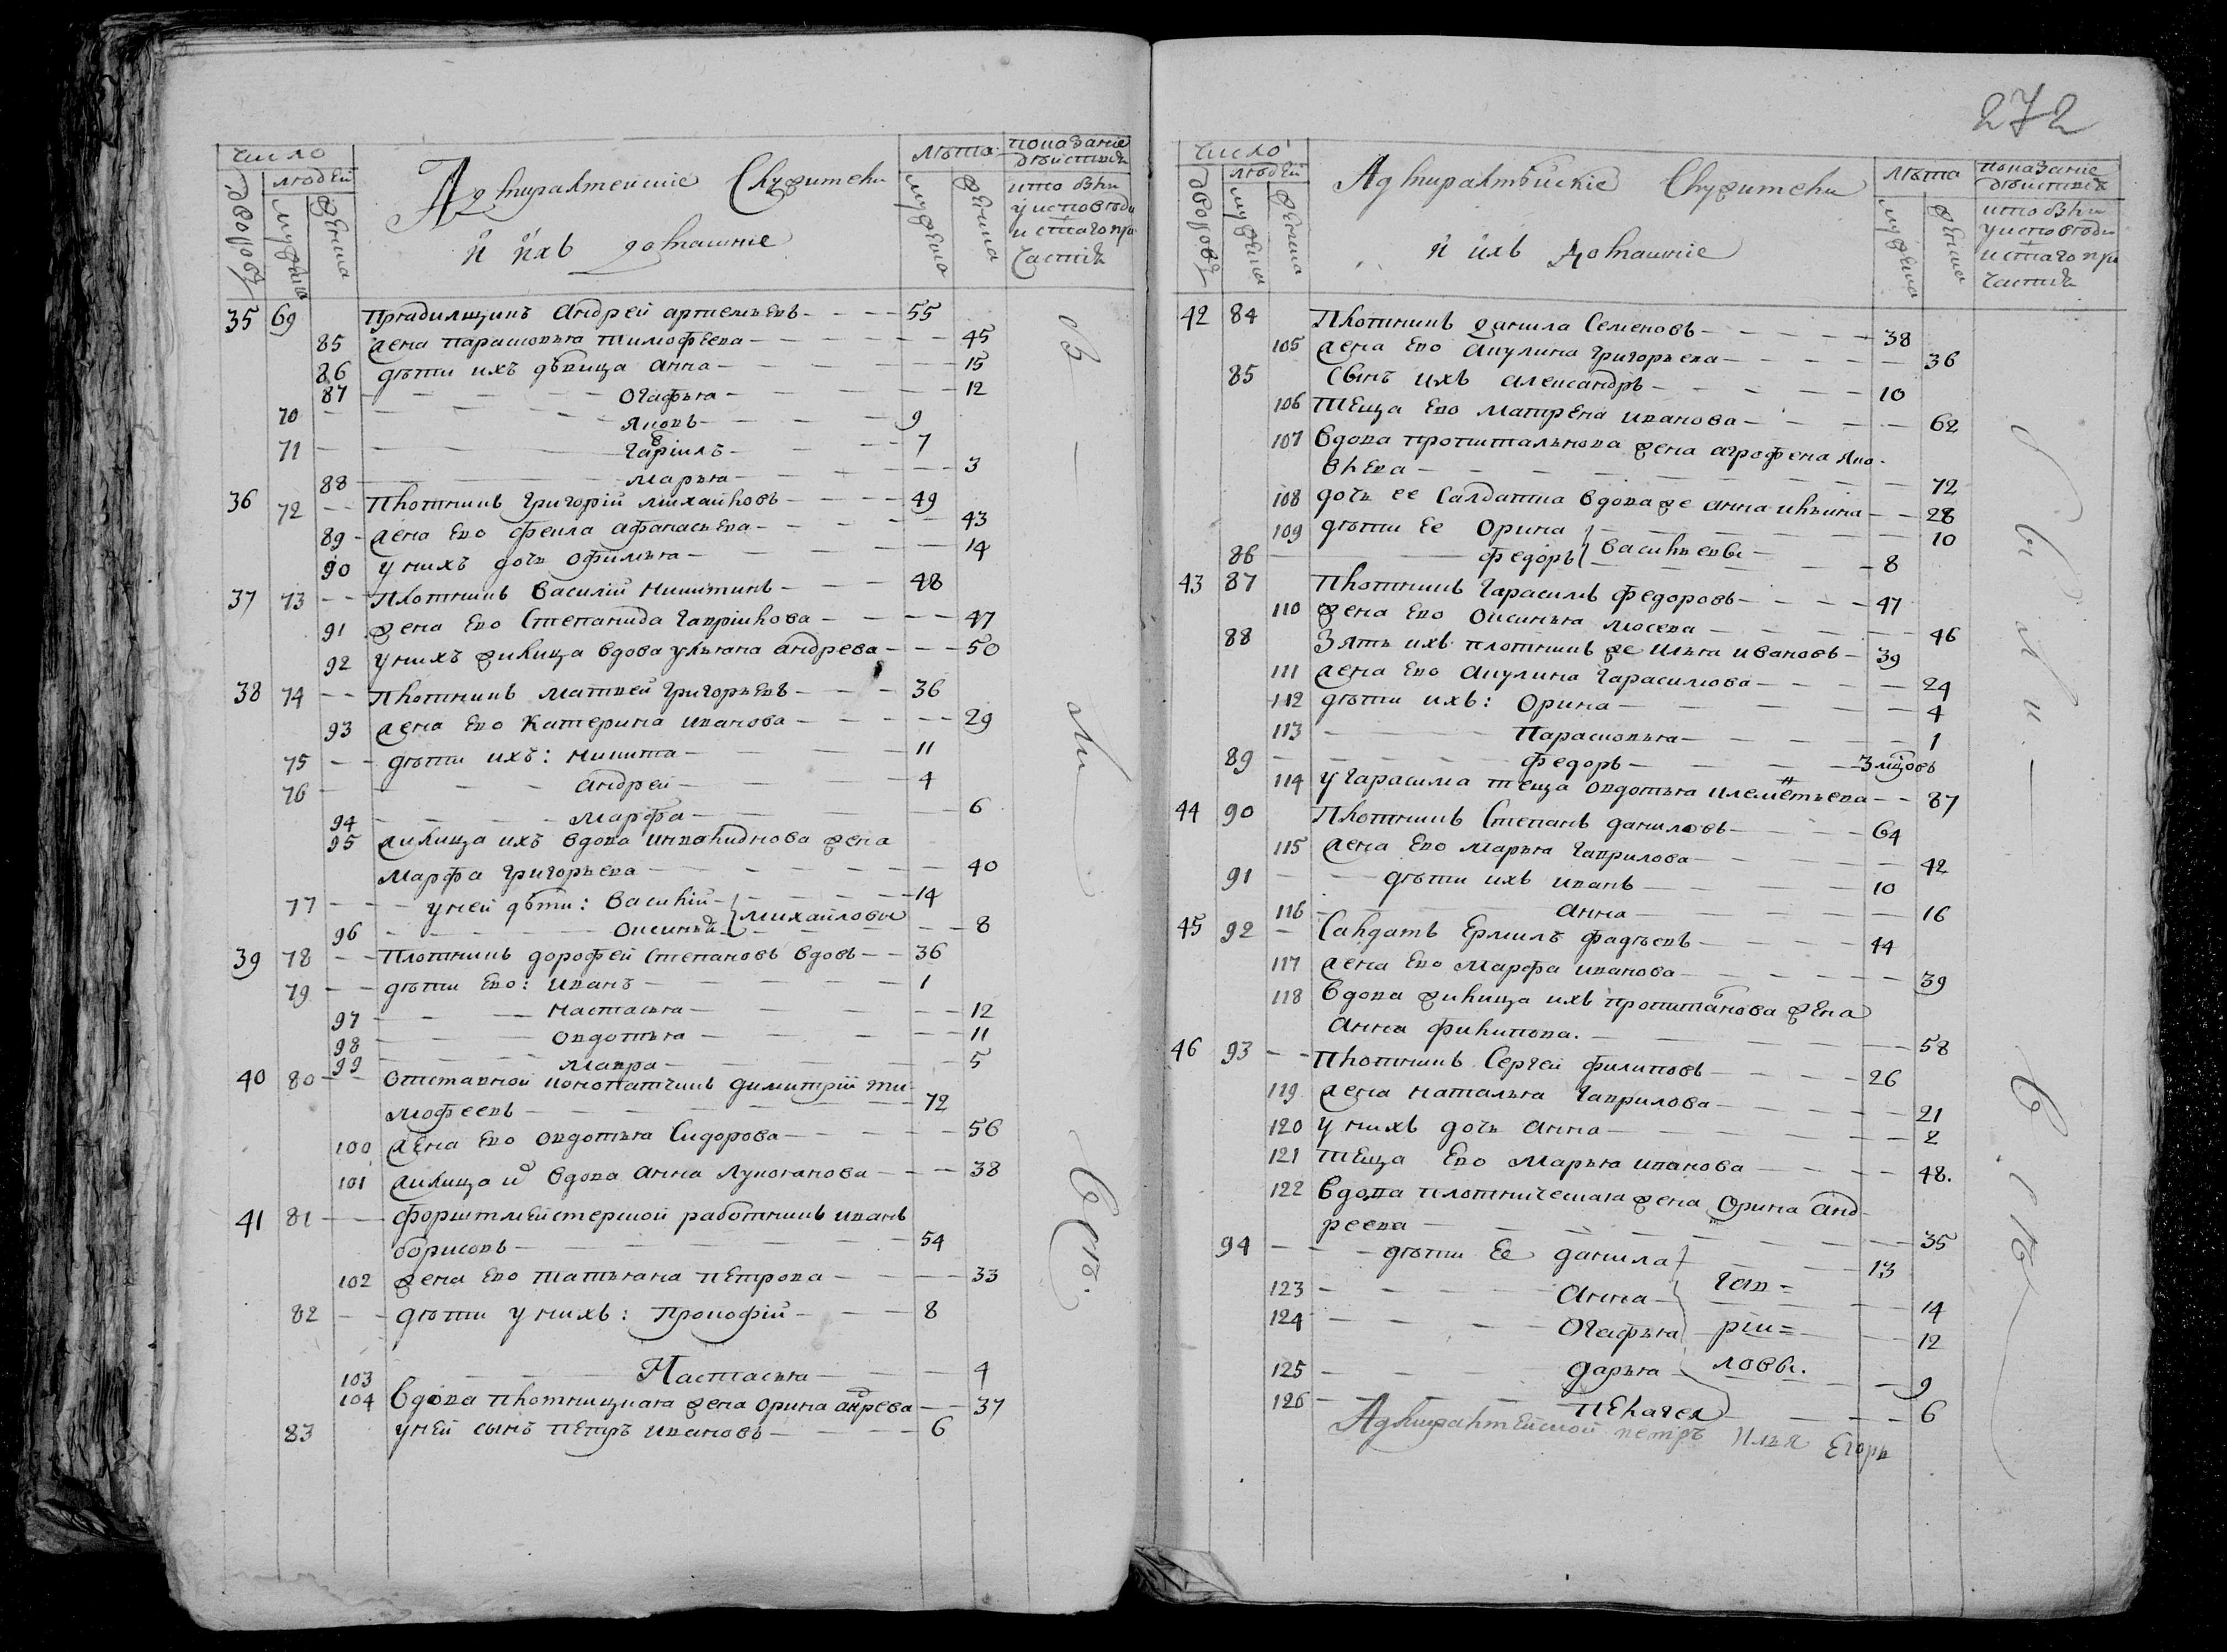 число
людей
дворовъ
мужеска
женска
Адмиралтейские Служители
и ихъ домашние
лѣта
мужеска
женска
показание
дѣйствъ
кто былъ
у исповѣди
и с:таго при
частия
35 69 Прядилщикъ Андрей артемьевъ 55
85 жена парасковья тимофеева 45
86 дѣти ихъ дѣвица анна 15
87 Огафья 12
70 яковъ 9
71 гаврiилъ 7
88 марья 3
36 72 Плотникъ григорiй михайловъ 49
89 жена ево фекла афанасьева 43
90 у нихъ дочь офимья 14
37 73 Плотникъ василiй никитинъ 48
91 жена ево степанида гаврiилова 47
92 у нихъ жилица вдова ульяна андрева 50
38 74 Плотникъ матвей григорьевъ 36
93 жена ево катерина иванова 29
75 дѣти ихъ: никита 11
76 андрей 4
94 марфа 6
95 жилица ихъ вдова инвалиднова жена
марфа григорьева 40
77 у ней дѣти: василiй 14
96 оксинья } михайловы 8
39 78 Плотникъ дорофей степановъ вдовъ 36
79 дѣти ево: иванъ 1
97 настасья 12
98 овдотья 11
99 мавра 5
40 80 Отставной конопатчикъ димитрiй ти
мофеевъ 72
100 жена ево овдотья сидорова 56
101 жилица и вдова анна лукоянова 38
41 81 форштмейстерской работникъ иванъ
борисовъ 54
102 жена ево татьяна петрова 33
82 дѣти у нихъ: прокофiй 8
103 Настасья 4
104 вдова плотницкая жена орина андрева 37
83 у ней сынъ петръ ивановъ 6
272
число
людей
дворовъ
мужеска
женска
Адмиралтейские Служители
и ихъ домашние
лѣта
мужеска
женска
показание
дѣйствъ
кто былъ
у исповѣди
и с:таго при
частия
42 84 Плотникъ данила семеновъ 38
105 жена ево акулина григорьева 36
85 сынъ ихъ александръ 10
106 теща ево матрена иванова 62
107 вдова пропитальнова жена аграфена яко
влева 72
108 дочь ее салдатка вдова же анна ильина 28
109 дѣти ее орина 10
86 федоръ } васильевы 8
43 87 Плотникъ гарасимъ федоровъ 47
110 жена ево оксинья мосева 46
88 зять ихъ плотникъ же илья ивановъ 39
111 жена ево акулина гарасимова 24
112 дѣти ихъ: орина 4
113 парасковья 1
89 федоръ 3 мцовъ
114 у гарасима теща овдотья клементьева 87
44 90 Плотникъ степанъ даниловъ 64
115 жена ево марья гаврилова 42
91 дѣти ихъ иванъ 10
116 анна 16
45 92 Салдатъ ермилъ фадѣевъ 44
117 жена ево марфа иванова 39
118 вдова жилица ихъ пропитанова жена
анна филипова. 58
46 93 Плотникъ сергей филиповъ 26
119 жена наталья гаврилова 21
120 у нихъ дочь анна 2
121 теща ево марья иванова 48.
122 вдова плотническая жена орина анд
реева 35
94 дѣти ее данила 13
123 анна гав= 14
124 огафья рiи= 12
125 дарья ловы. 9
126 пелагея 6
Адмиралтейской петръ Илья Егоръ